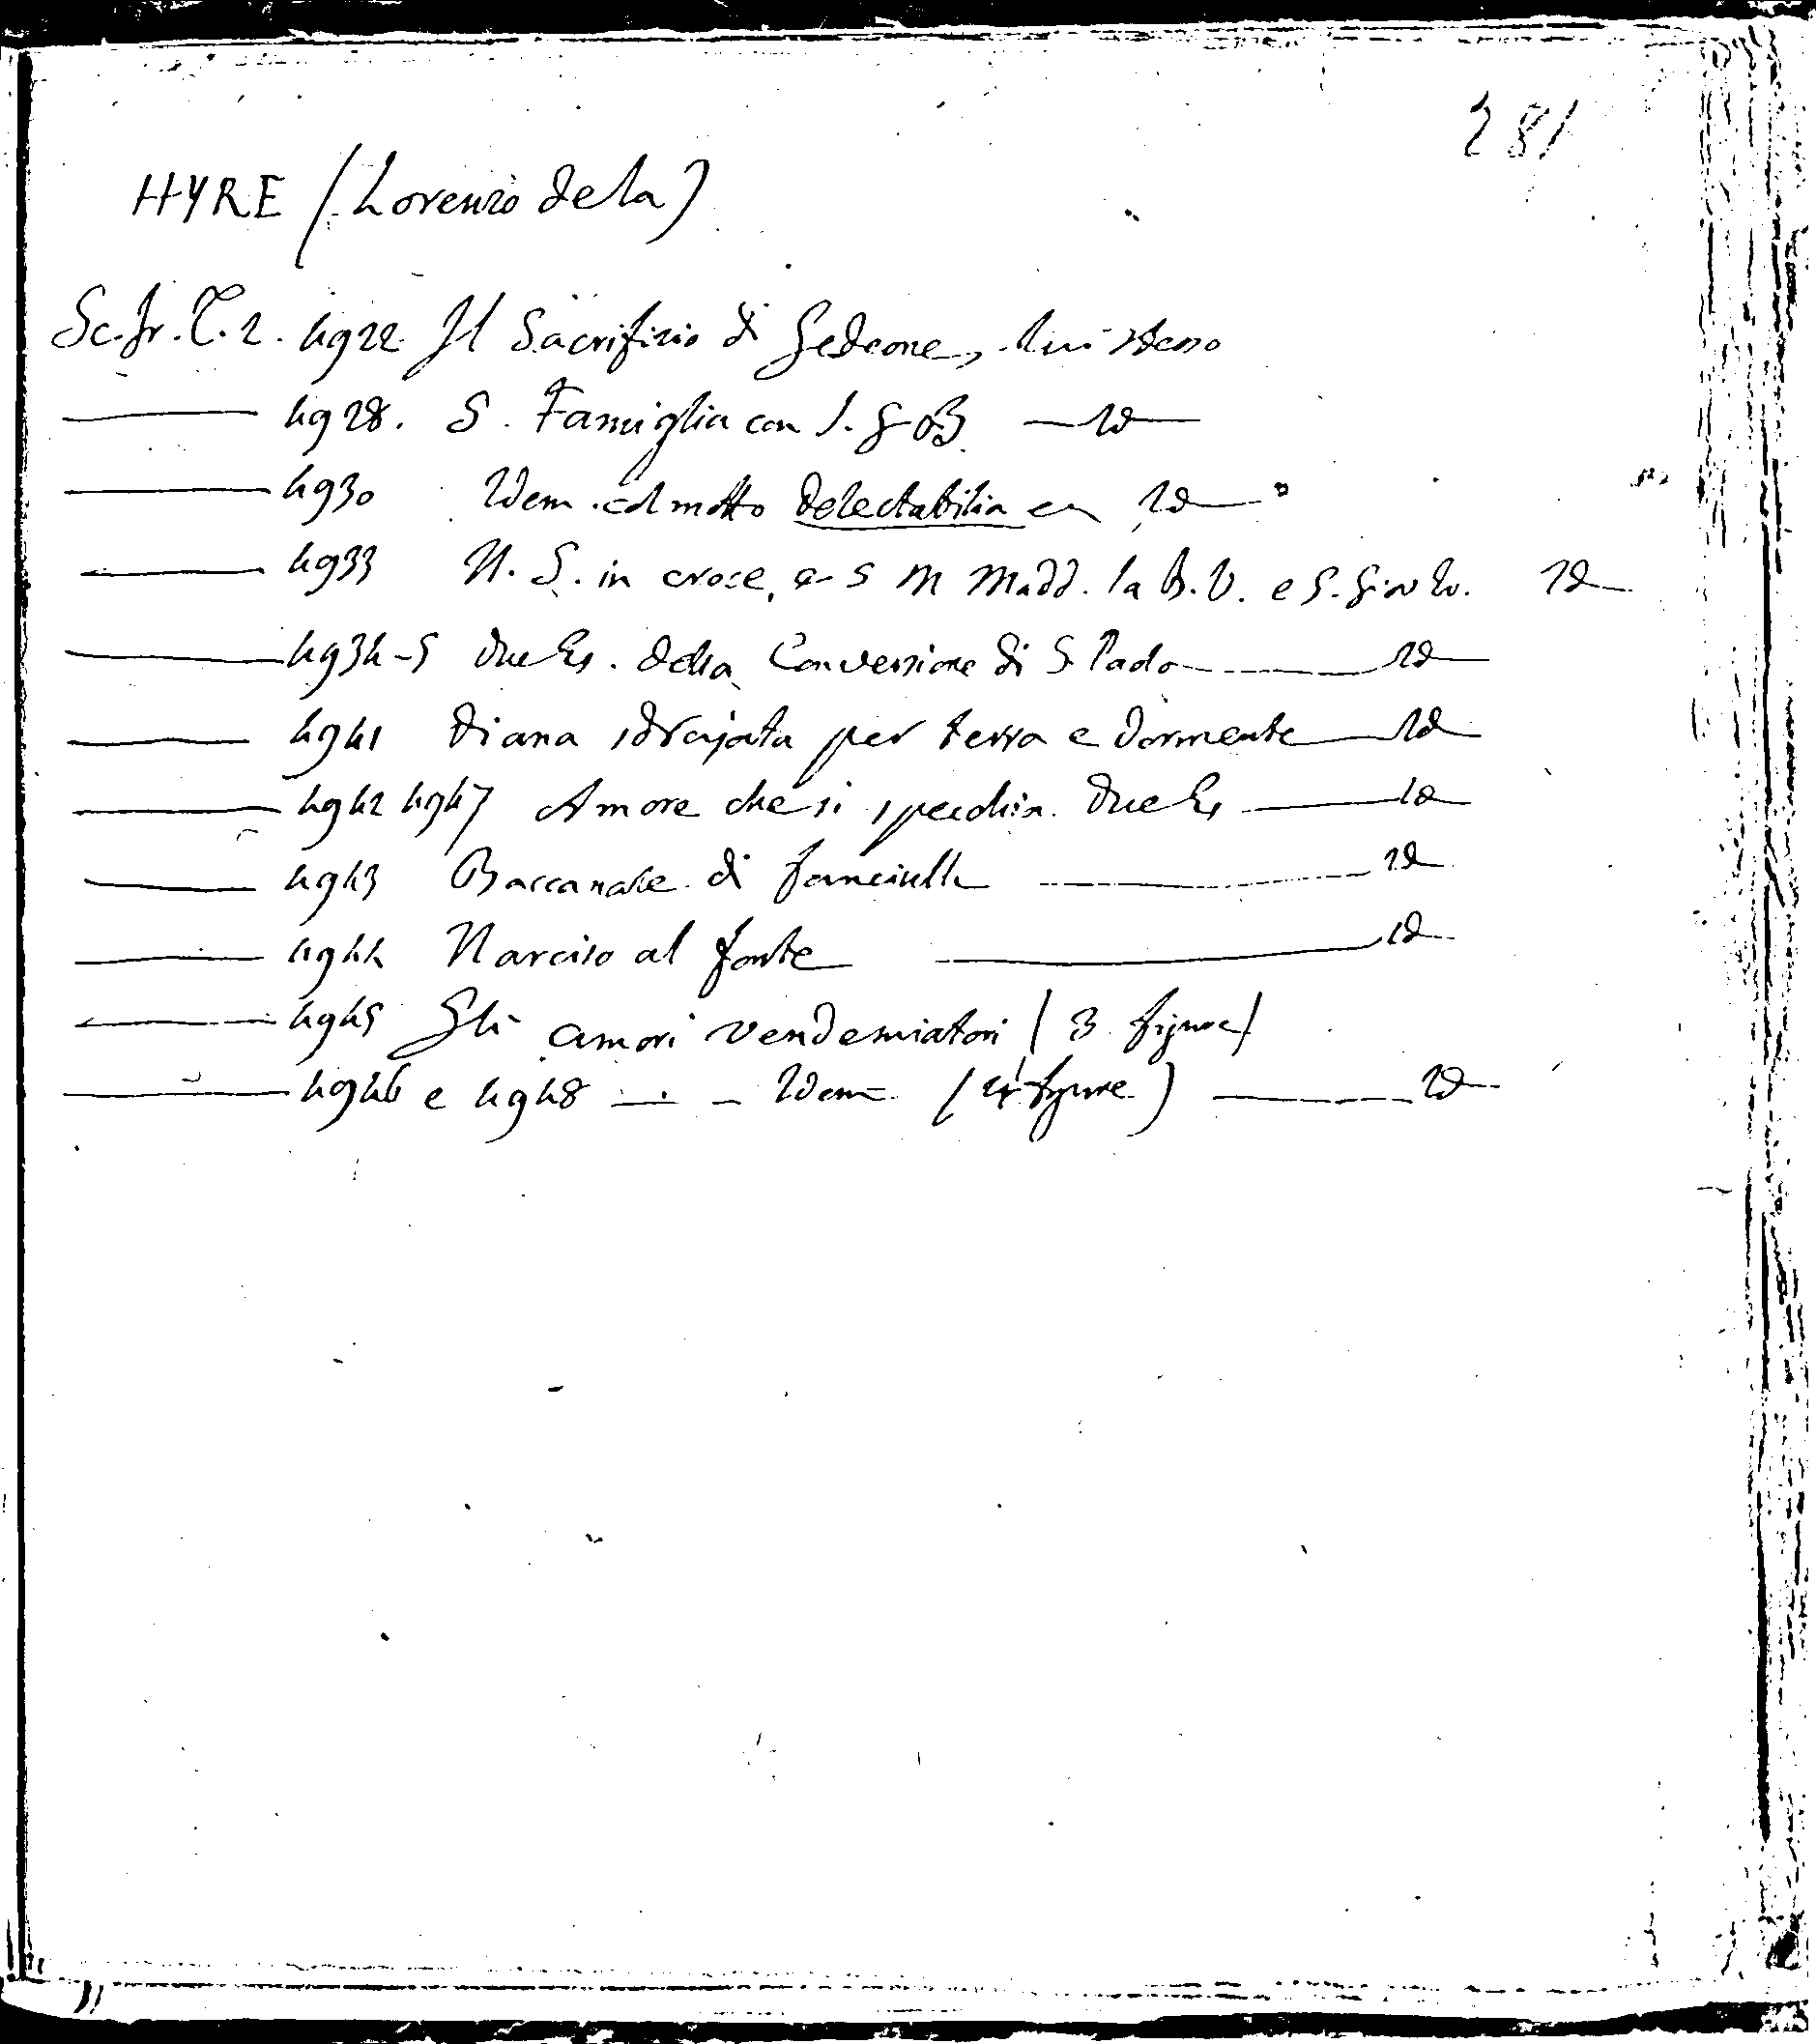 281
HYRE (Lorenzo de la)
Sc. fr. T. 2. 4922 Il Sacrifizio di Gedeone, lui stesso
4928. S. Famiglia con S. G B Id
4930 Idem col motto Delectabilia Id
4933 N. S. in croce, S M Madd. la B. V. e S. Id
4934-5 due Es. della Conversione di S Paolo Id
4941 Diana sdrajata per terra e dormente Id
4942 4947 Amore che si specchia. due Es Id
4943 Baccanale di fanciulli Id
4944 Narciso al fonte Id
4945 Gli amori vendemiatori (3 figure)
4946 e 4948 Idem (4 figure) Id